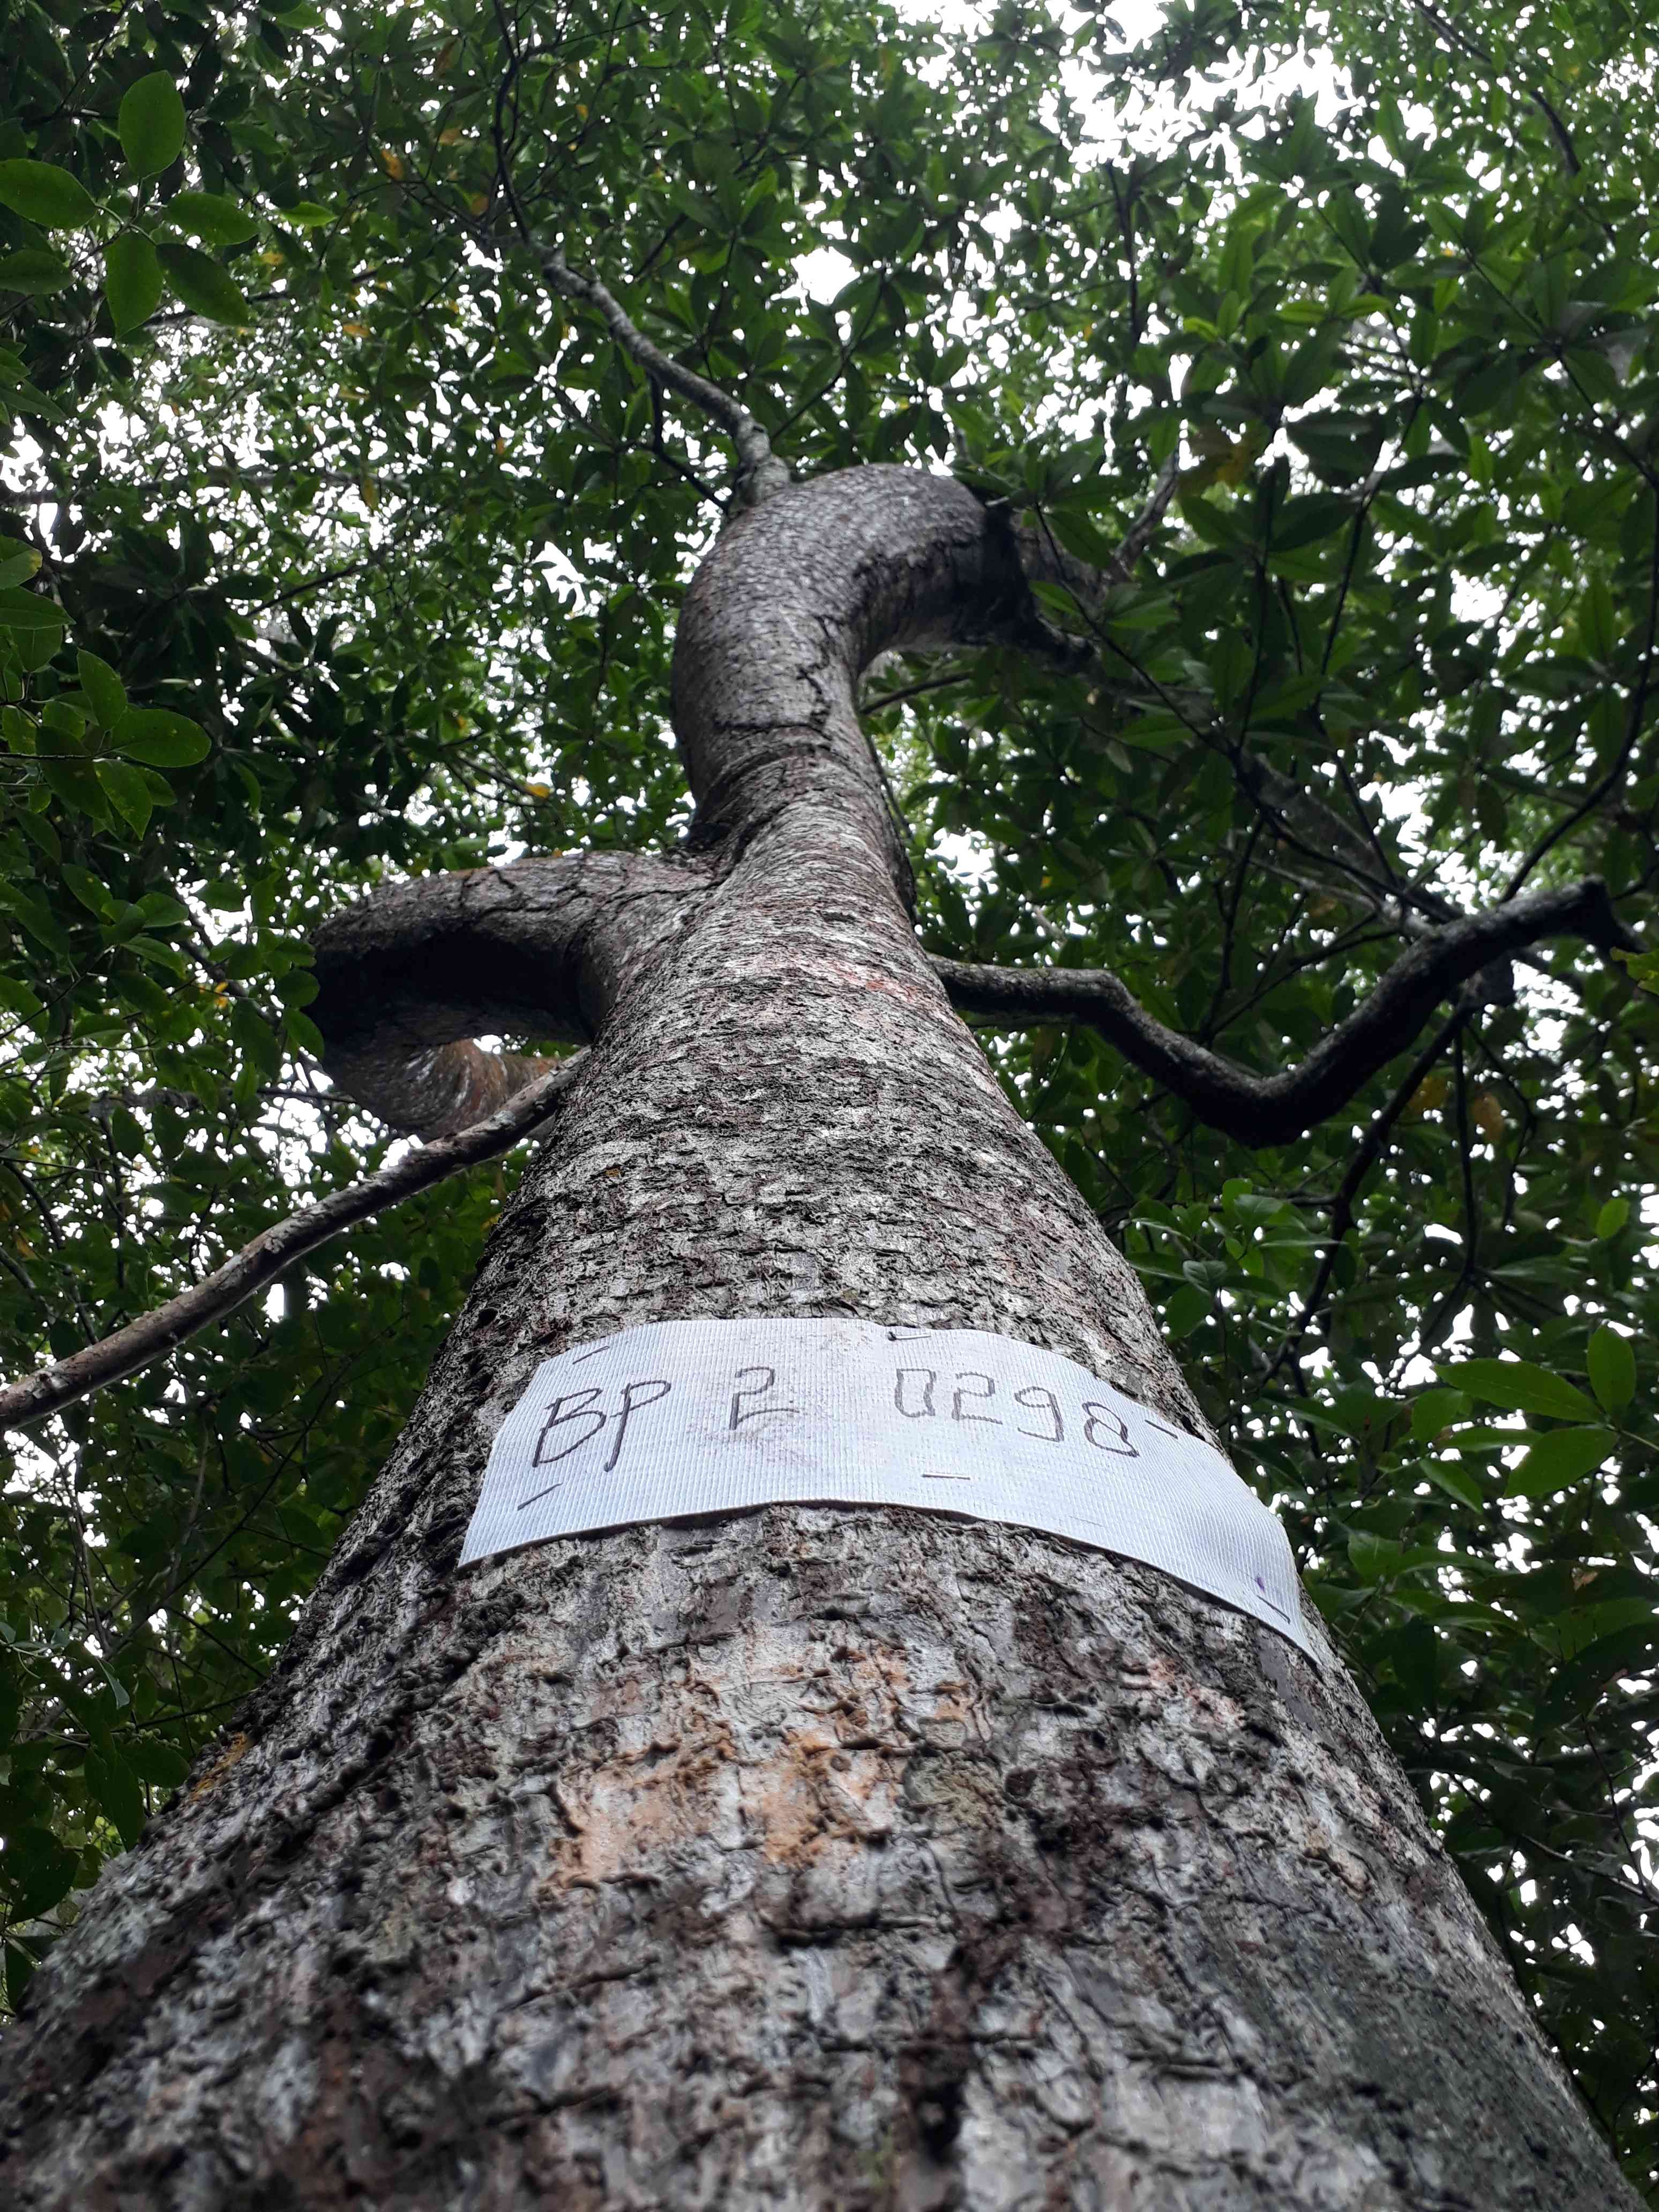 BP 2 0298